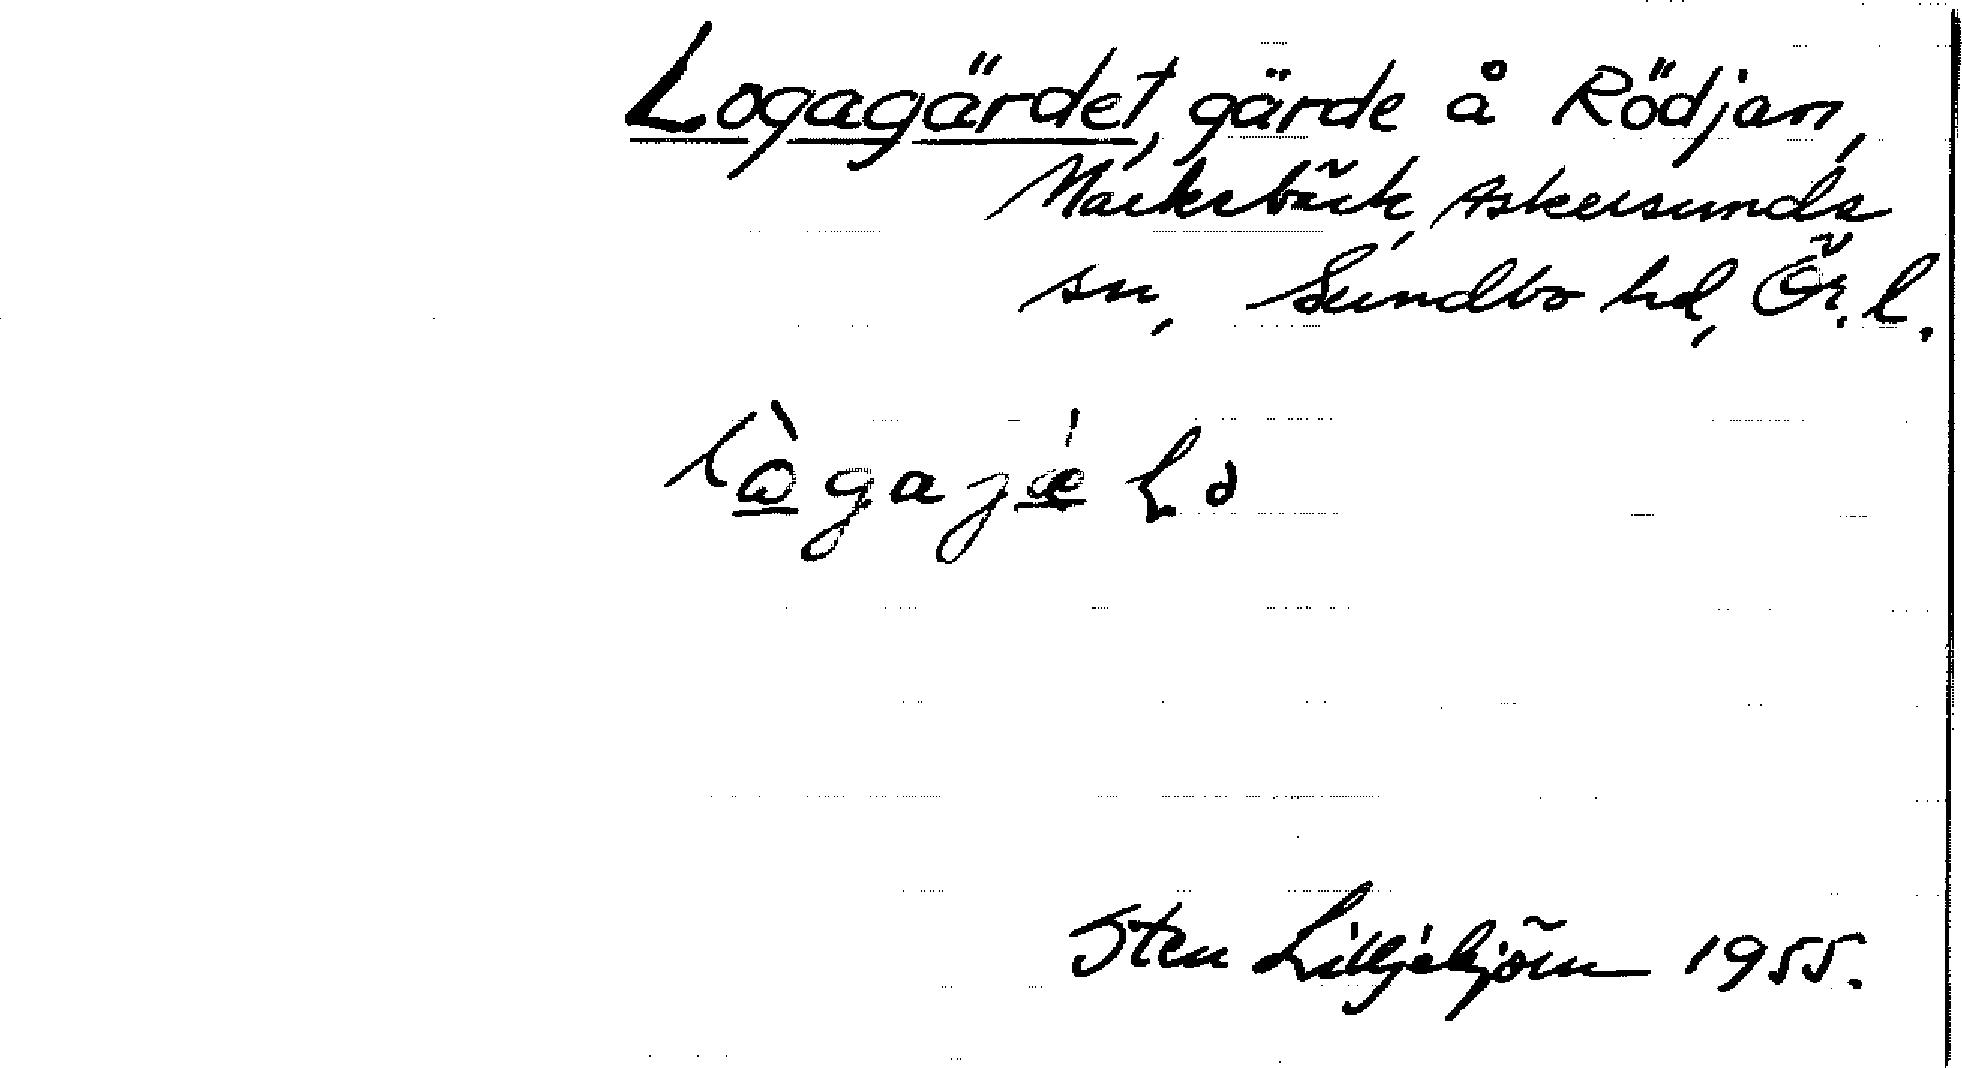 Logagärdet, gärde å Rödjan,
Markebäck, Askersunds
sn, Sundbo hd, Ör. l.
Sten Liljebjörn 1955.